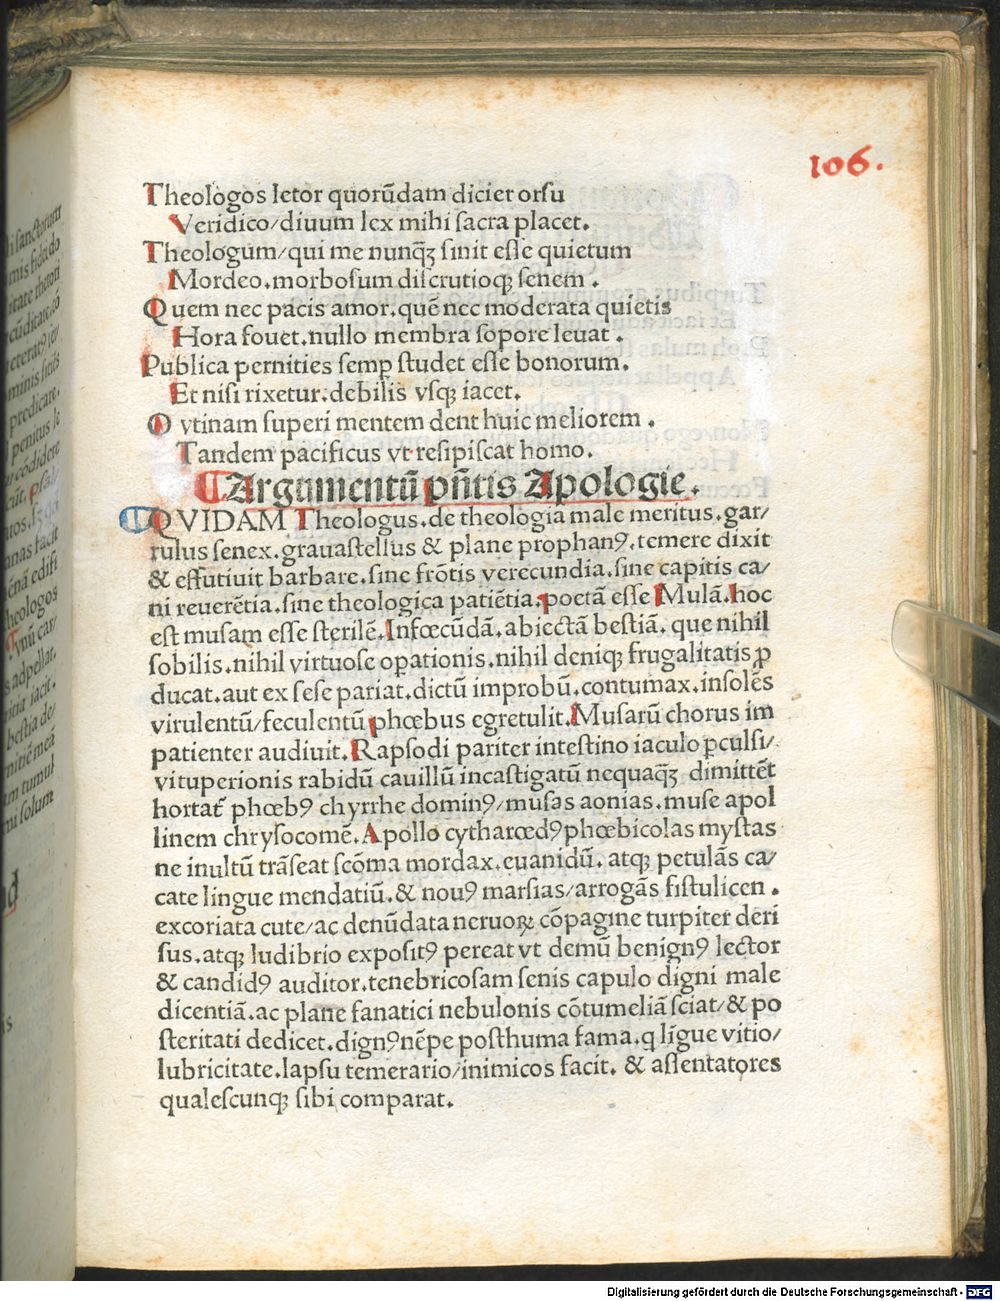 106.
Theologos letor quorūdam dicier orsu
Veridico/diuum lex mihi sacra placet.
Theologum/qui me nunqꝫ sinit esse quietum
Mordeo.morbosum discrutioqꝫ senem.
Quem nec pacis amor.quē nec moderata quietis
Hora fouet.nullo membra sopore leuat.
Publica pernities semꝑ studet esse bonorum.
Et nisi rixetur.debilis vsqꝫ iacet.
O vtinam superi mentem dent huic meliorem.
Tandem pacificus vt resipiscat homo.
Argumentū pñtis Apologie.
QVIDAM Theologus.de theologia male meritus.gar/
rulus senex.grauastellus & plane prophanꝰ.temere dixit
& effutiuit barbare.sine frōtis verecundia.sine capitis ca/
ni reuerētia.sine theologica patiētia.poetā esse Mulā.hoc
est musam esse sterilē.Infœcūdā.abiectā bestiā.que nihil
sobilis.nihil virtuose oꝑationis.nihil deniqꝫ frugalitatis ꝓ
ducat.aut ex sese pariat.dictū improbū.contumax.insolēs
virulentū/feculentū phœbus egretulit.Musarū chorus im
patienter audiuit.Rapsodi pariter intestino iaculo ꝑculsi/
vituperionis rabidū cauillū incastigatū nequaqꝫ dimittēt
hortat᷑ phœbꝰ chyrrhe dominꝰ/musas aonias.muse apol
linem chrysocomē.Apollo cytharœdꝰ phœbicolas mystas
ne inultū trāseat scōma mordax.euanidū.atqꝫ petulās ca/
cate lingue mendatiū.& nouꝰ marsias/arrogās fistulicen.
excoriata cute/ac denūdata neruoꝝ cōpagine turpiter deri
sus.atqꝫ ludibrio expositꝰ pereat vt demū benignꝰ lector
& candidꝰ auditor.tenebricosam senis capulo digni male
dicentiā.ac plane fanatici nebulonis cōtumeliā sciat/& po
steritati dedicet.dignꝰ nēpe posthuma fama.q ligue vitio/
lubricitate.lapsu temerario/inimicos facit. & assentatores
qualescunqꝫ sibi comparat.
Digitalisierung gefördert durch die Deutsche Forschungsgemeinschaft - DFG